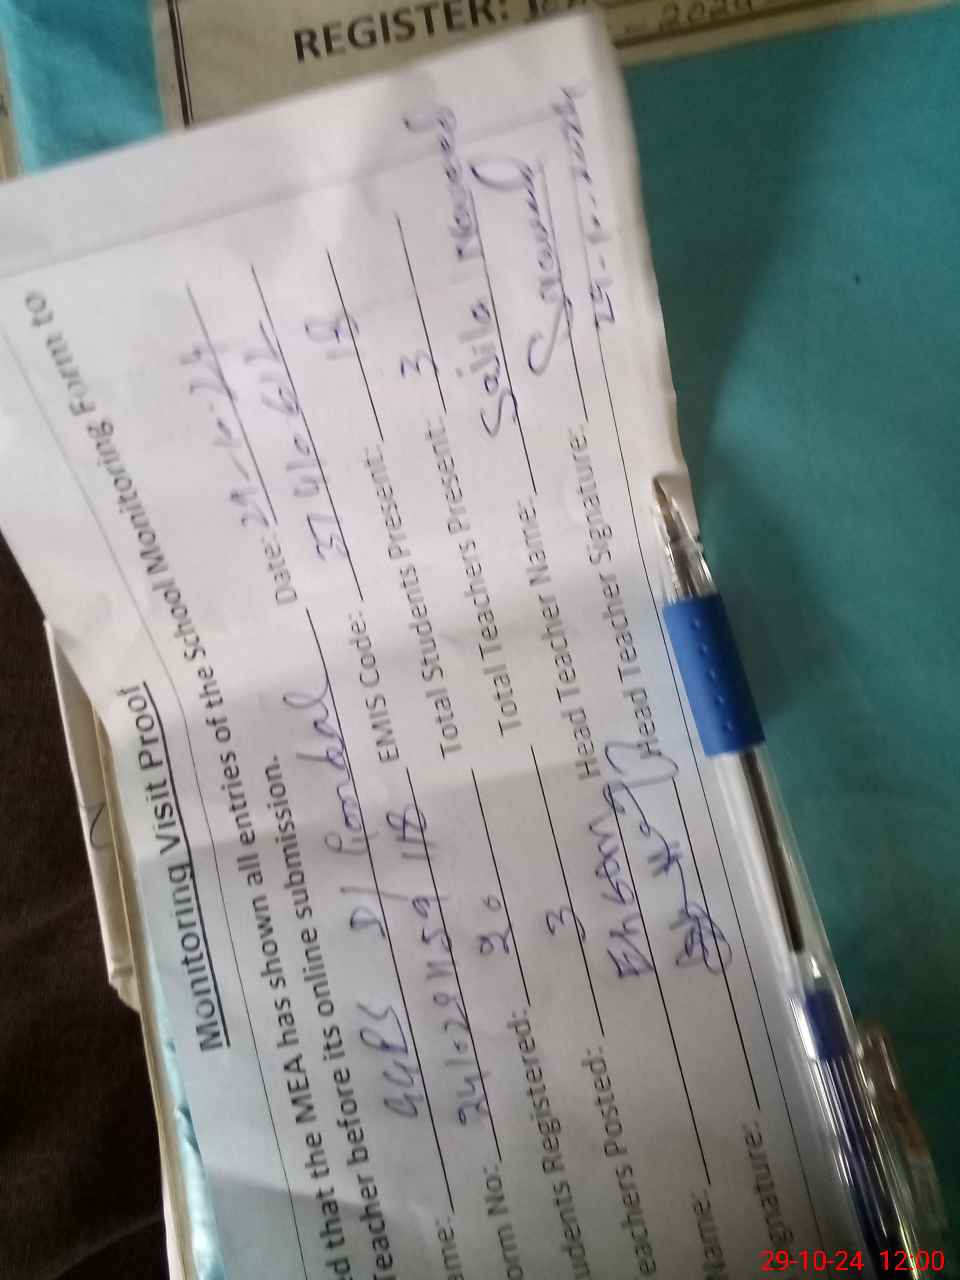 REGISTER:
Monitoring Visit Proof
ed that the MEA has shown all entries of the School Monitoring Form to
Teacher before its online submission.
ame: GGPS D/ Gondal Date: 29-10-24
orm No: EMIS Code: 37410612
udents Registered: 20 Total Students Present: 18
eachers Posted: 3 Total Teachers Present: 3
Name: Ehsan Head Teacher Name: Sajila Naveed
ignature: Head Teacher Signature:
29-10-2024
29-10-24 12:00